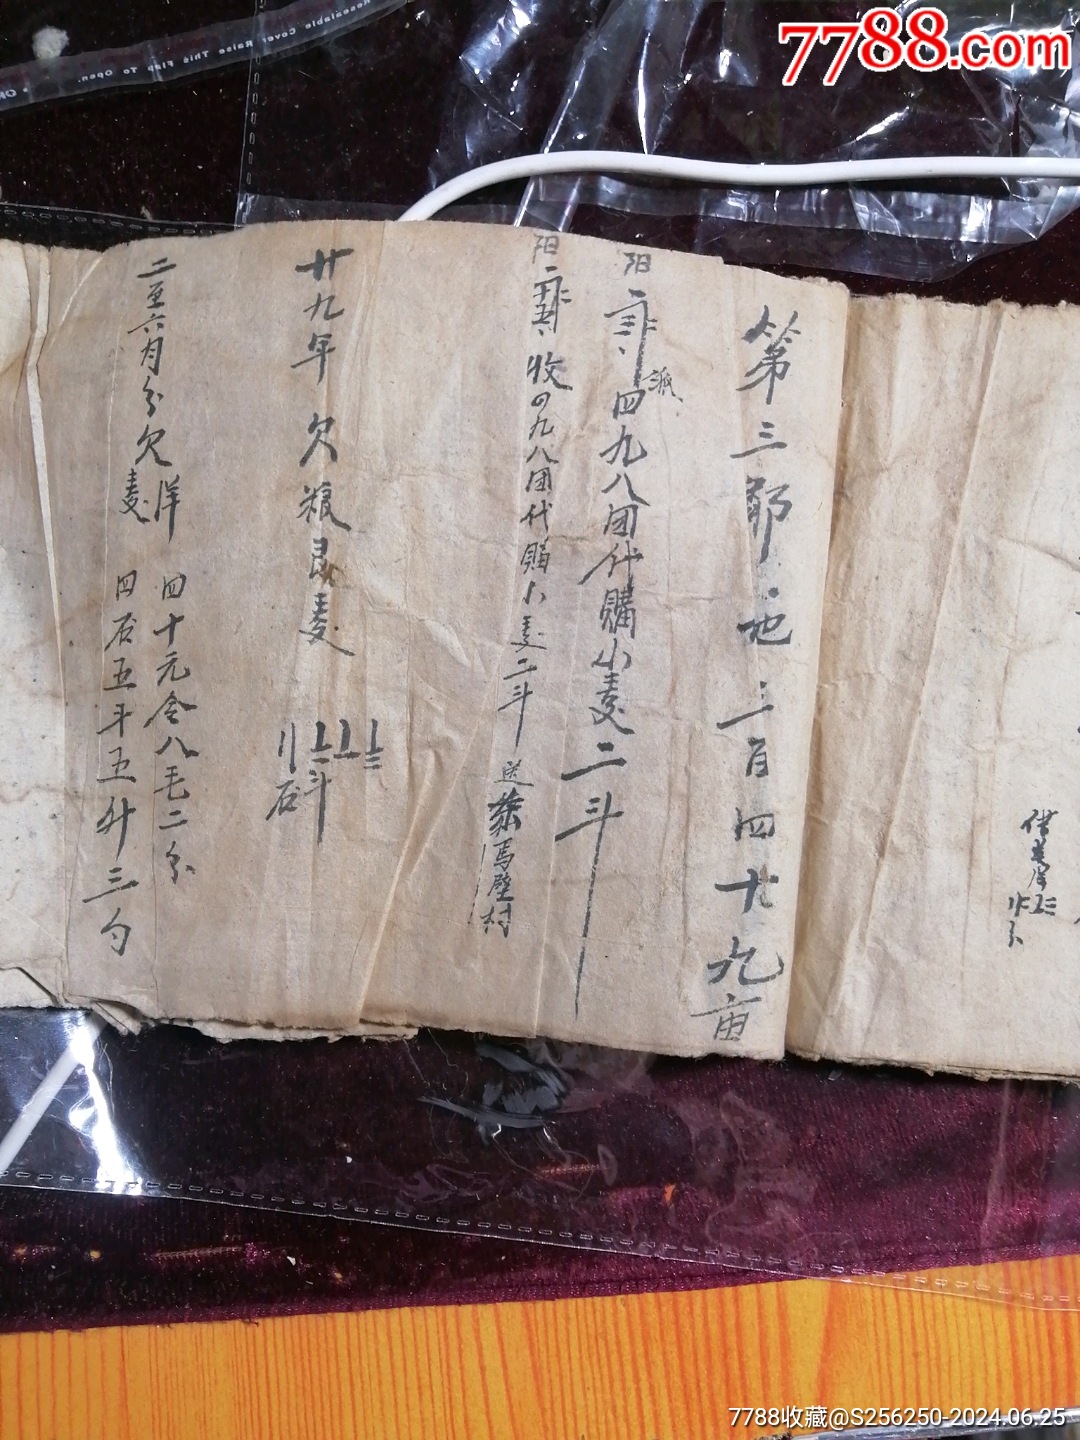 7788.com
Resealable Cover Raise This Flap To Open.
第三鄒地三百四十九亩
阳
派
四九八团代購小麦二斗
阳
收四九八团代購小麦二斗
送
马壁村
廿九年欠粮良麦
二至六月分欠
洋 四十元令八毛二分
麦 四石五斗五升三勺
7788收藏@S256250-2024.06.25